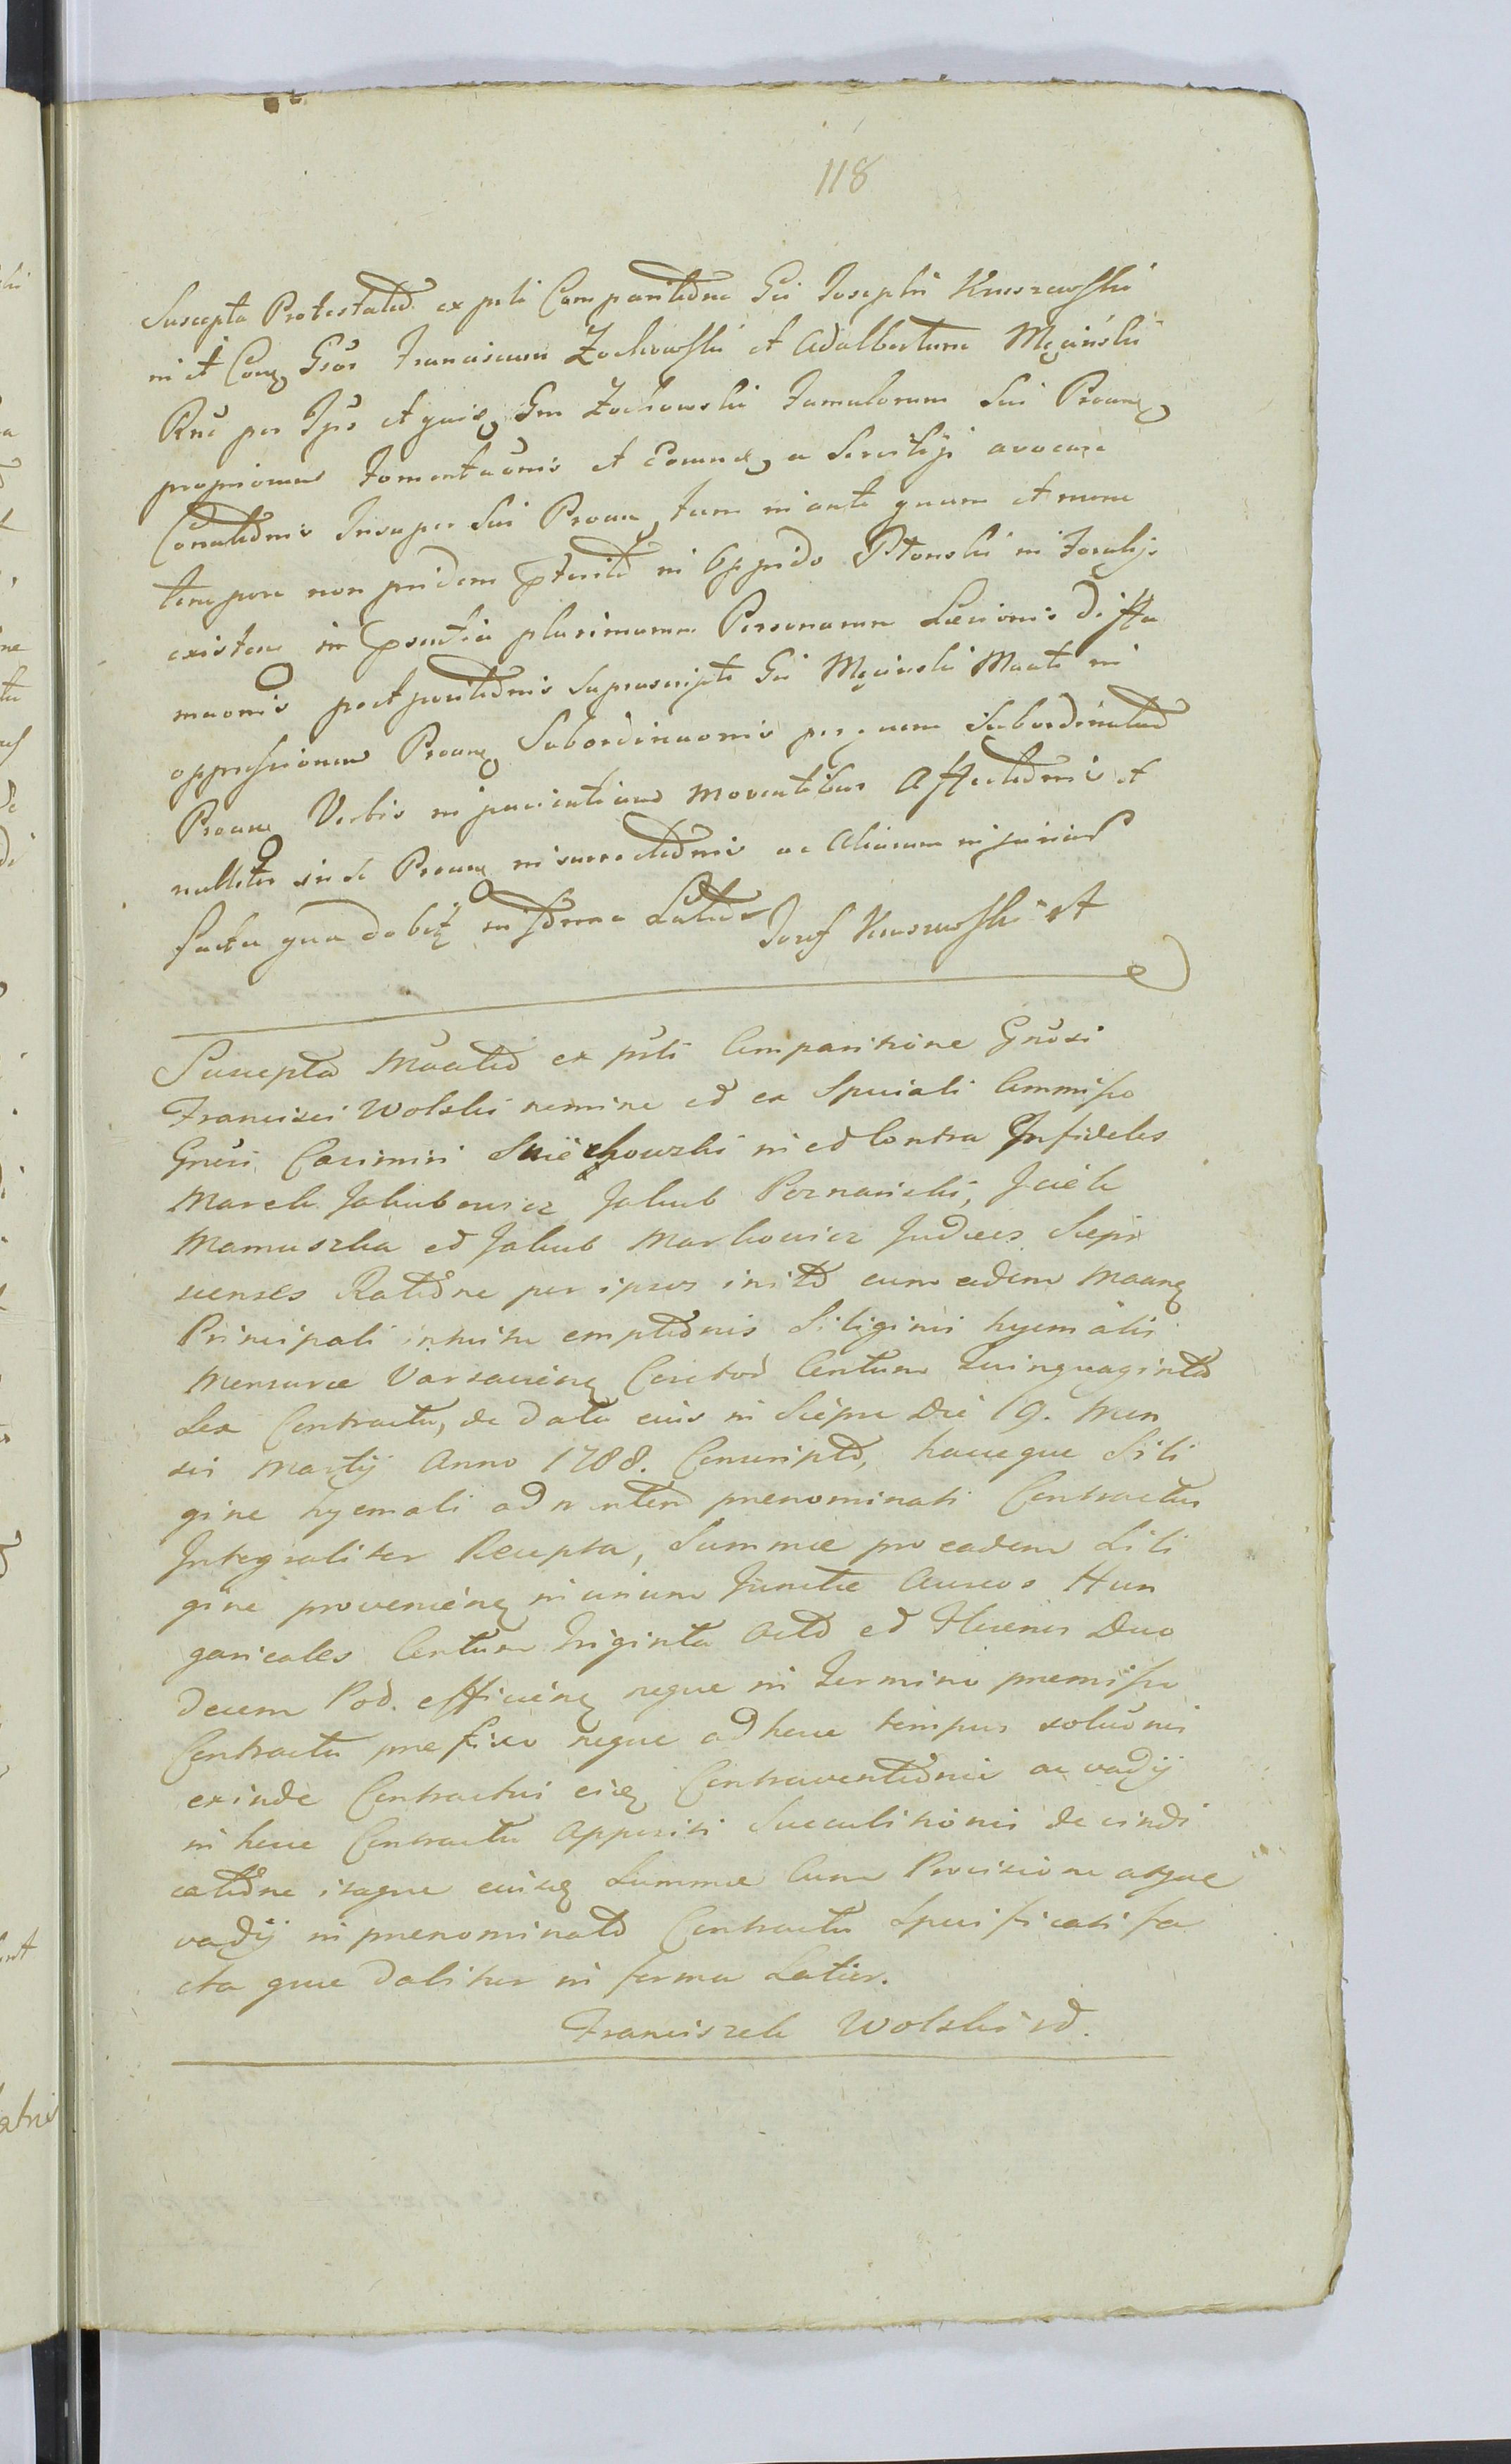 118
Suscepta Protestatio ex pnti Comparitione Gsi Josephi Kruszewski
in et Conq Gsos Franciscum Żochowski et Adalbertum Męciński
Rne per Ips et quis Gm Żochowski Famulorum Sui Proanq
propriorum et a Servitijs avocare
Conationis Insuper Sui Proan tum in ante quam et nunc
tempore non pridem in Oppido Płonski in Foralijs
existen in psentia plurimarum Personarum Laesionis Diffa
maonis suprascripti Gsi Męcinski Maate in
oppressionem Proanq Subordinaonis per quem Subordinatus
Proanq Verbis in moventibus Affectionis et
in se Proanq insurrectionis ac Aliarum injuriar
facta qua dabitr in forma Latior Jozef Kruszewski
Suscepta Maatio ex pnti Comparitione Gnosi
Francisci Wolski nomine et ex Speciali Commisso
Gnosi Casimiri Sniechowski in et Contra Infideles
Marek Jakubowicz Jakub Poznański, Jcick
Mamuszka et Jakub Markowicz Judaeos Sieprs
censes Ratione per ipsos inito cum eodem Maanq
Principali intuitu emptionis Siliginis hyemalis
Mensurae Varsavienq Coretos Centum Quinquaginta
Sex Contractu, de data eius in Sieprc Die 19. Men
sis Martij Anno 1788. Conscripto, hancque Sili
gine hyemali ad prenominati Contractus
Integraliter Recepta, Summae pro eadem Sili
gine provenienq in unum Junctae Aureos Hun
garicales Centum Triginta Octo et Florenos Duo
decem Pol. efficienq neque in Termino premisso
Contractu prefixo neque ad hunc tempus soluonis
exinde Contractui eiq Contraventionis ac vadij
in hunc Contractu Appositi Succubitionis de vindi
catione itaque eiusq Summae Cum Provisione atque
vadij in prenominato Contractu Specificati fa
cta quae dabitur in forma Latior.
Franciszek Wolski